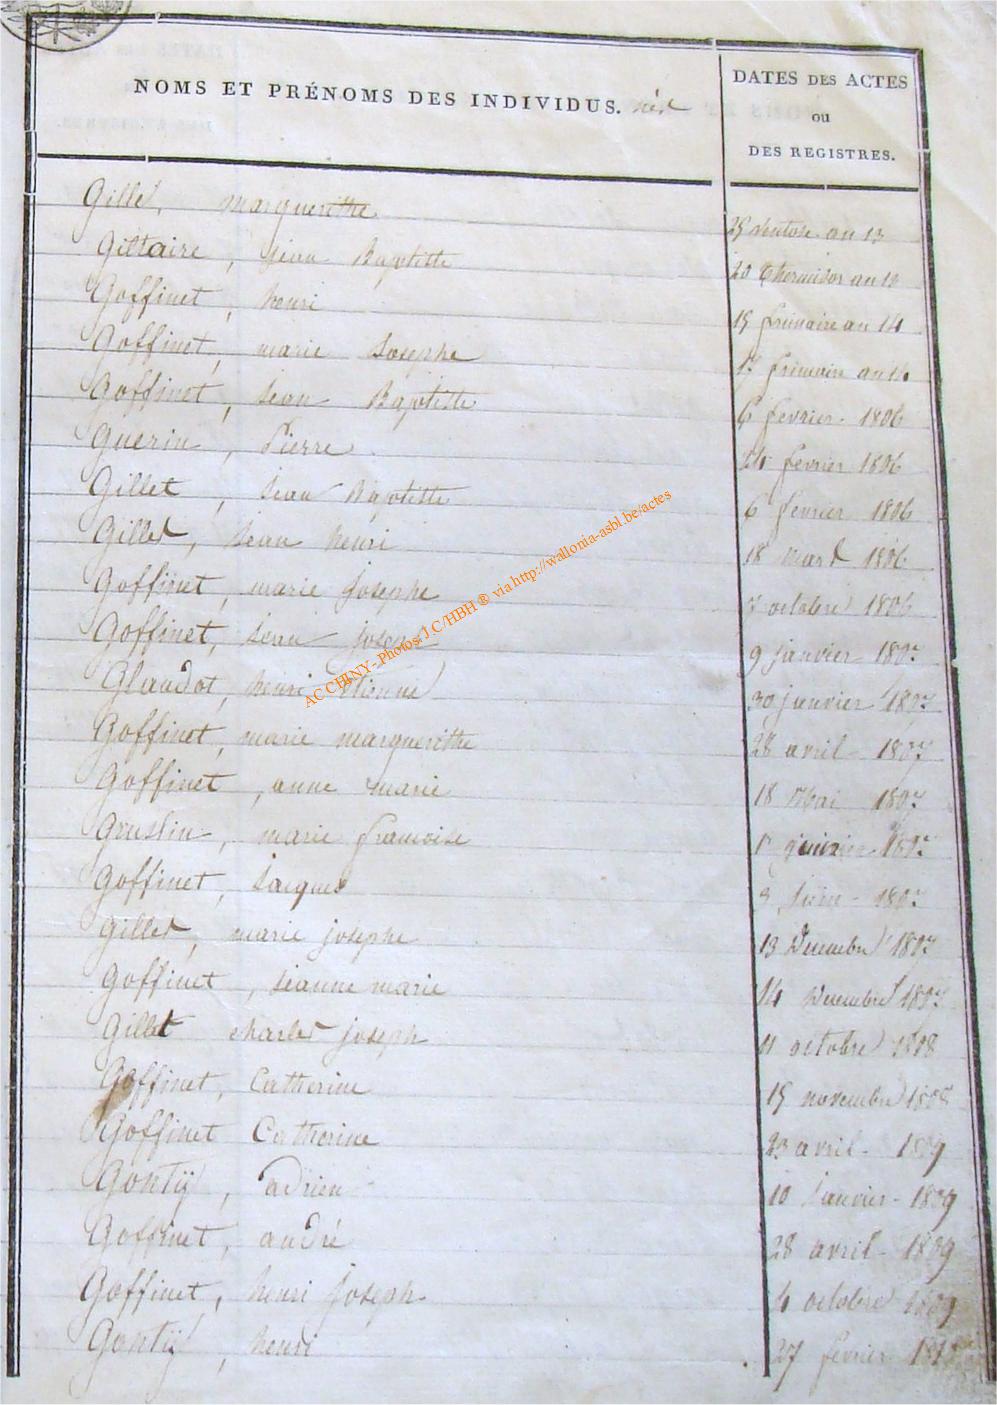 NOMS ET PRÉNOMS DES INDIVIDUS. nés
DATES DES ACTES
ou
DES REGISTRES.
Gillet, marguerithe 25 ventose an 13
Giltaire, jean Baptiste 20 thermidor an
Goffinet, henri 15 frimaire an 14
Goffinet, marie Josephe 17 frimaire an 14
Goffinet, jean Baptiste 6 fevrier 1806
Guerin, Pierre 24 fevrier 1806
Gillet, jean Baptiste 6 fevrier 1806
Gillet, jean henri 18 mars 1806
Goffinet, marie josephe 7 octobre 1806
Goffinet, jean joseph 9 janvier 1807
Glaudot, henri etienne 30 janvier 1807
Goffinet, marie marguerithe 28 avril 1807
Goffinet, anne marie 18 Mai 1807
Gruslin, marie francoise 1807
Goffinet, jacques 3 juin 1807
Gillet, marie josephe 13 decembre 1807
Goffinet, jeanne marie 14 decembre 1807
Gillet charles joseph 11 octobre 1808
Goffinet, Catherine 15 novembre 1808
Goffinet Catherine 23 avril 1809
Gontÿ, adrien 10 janvier 1809
Goffinet, andré 28 avril 1809
Goffinet, henri joseph 4 octobre 1809
Gontÿ, henri 27 fevrier
AC CHINY - Photos J.C/HBH ® via http://wallonia-asbl.be/actes